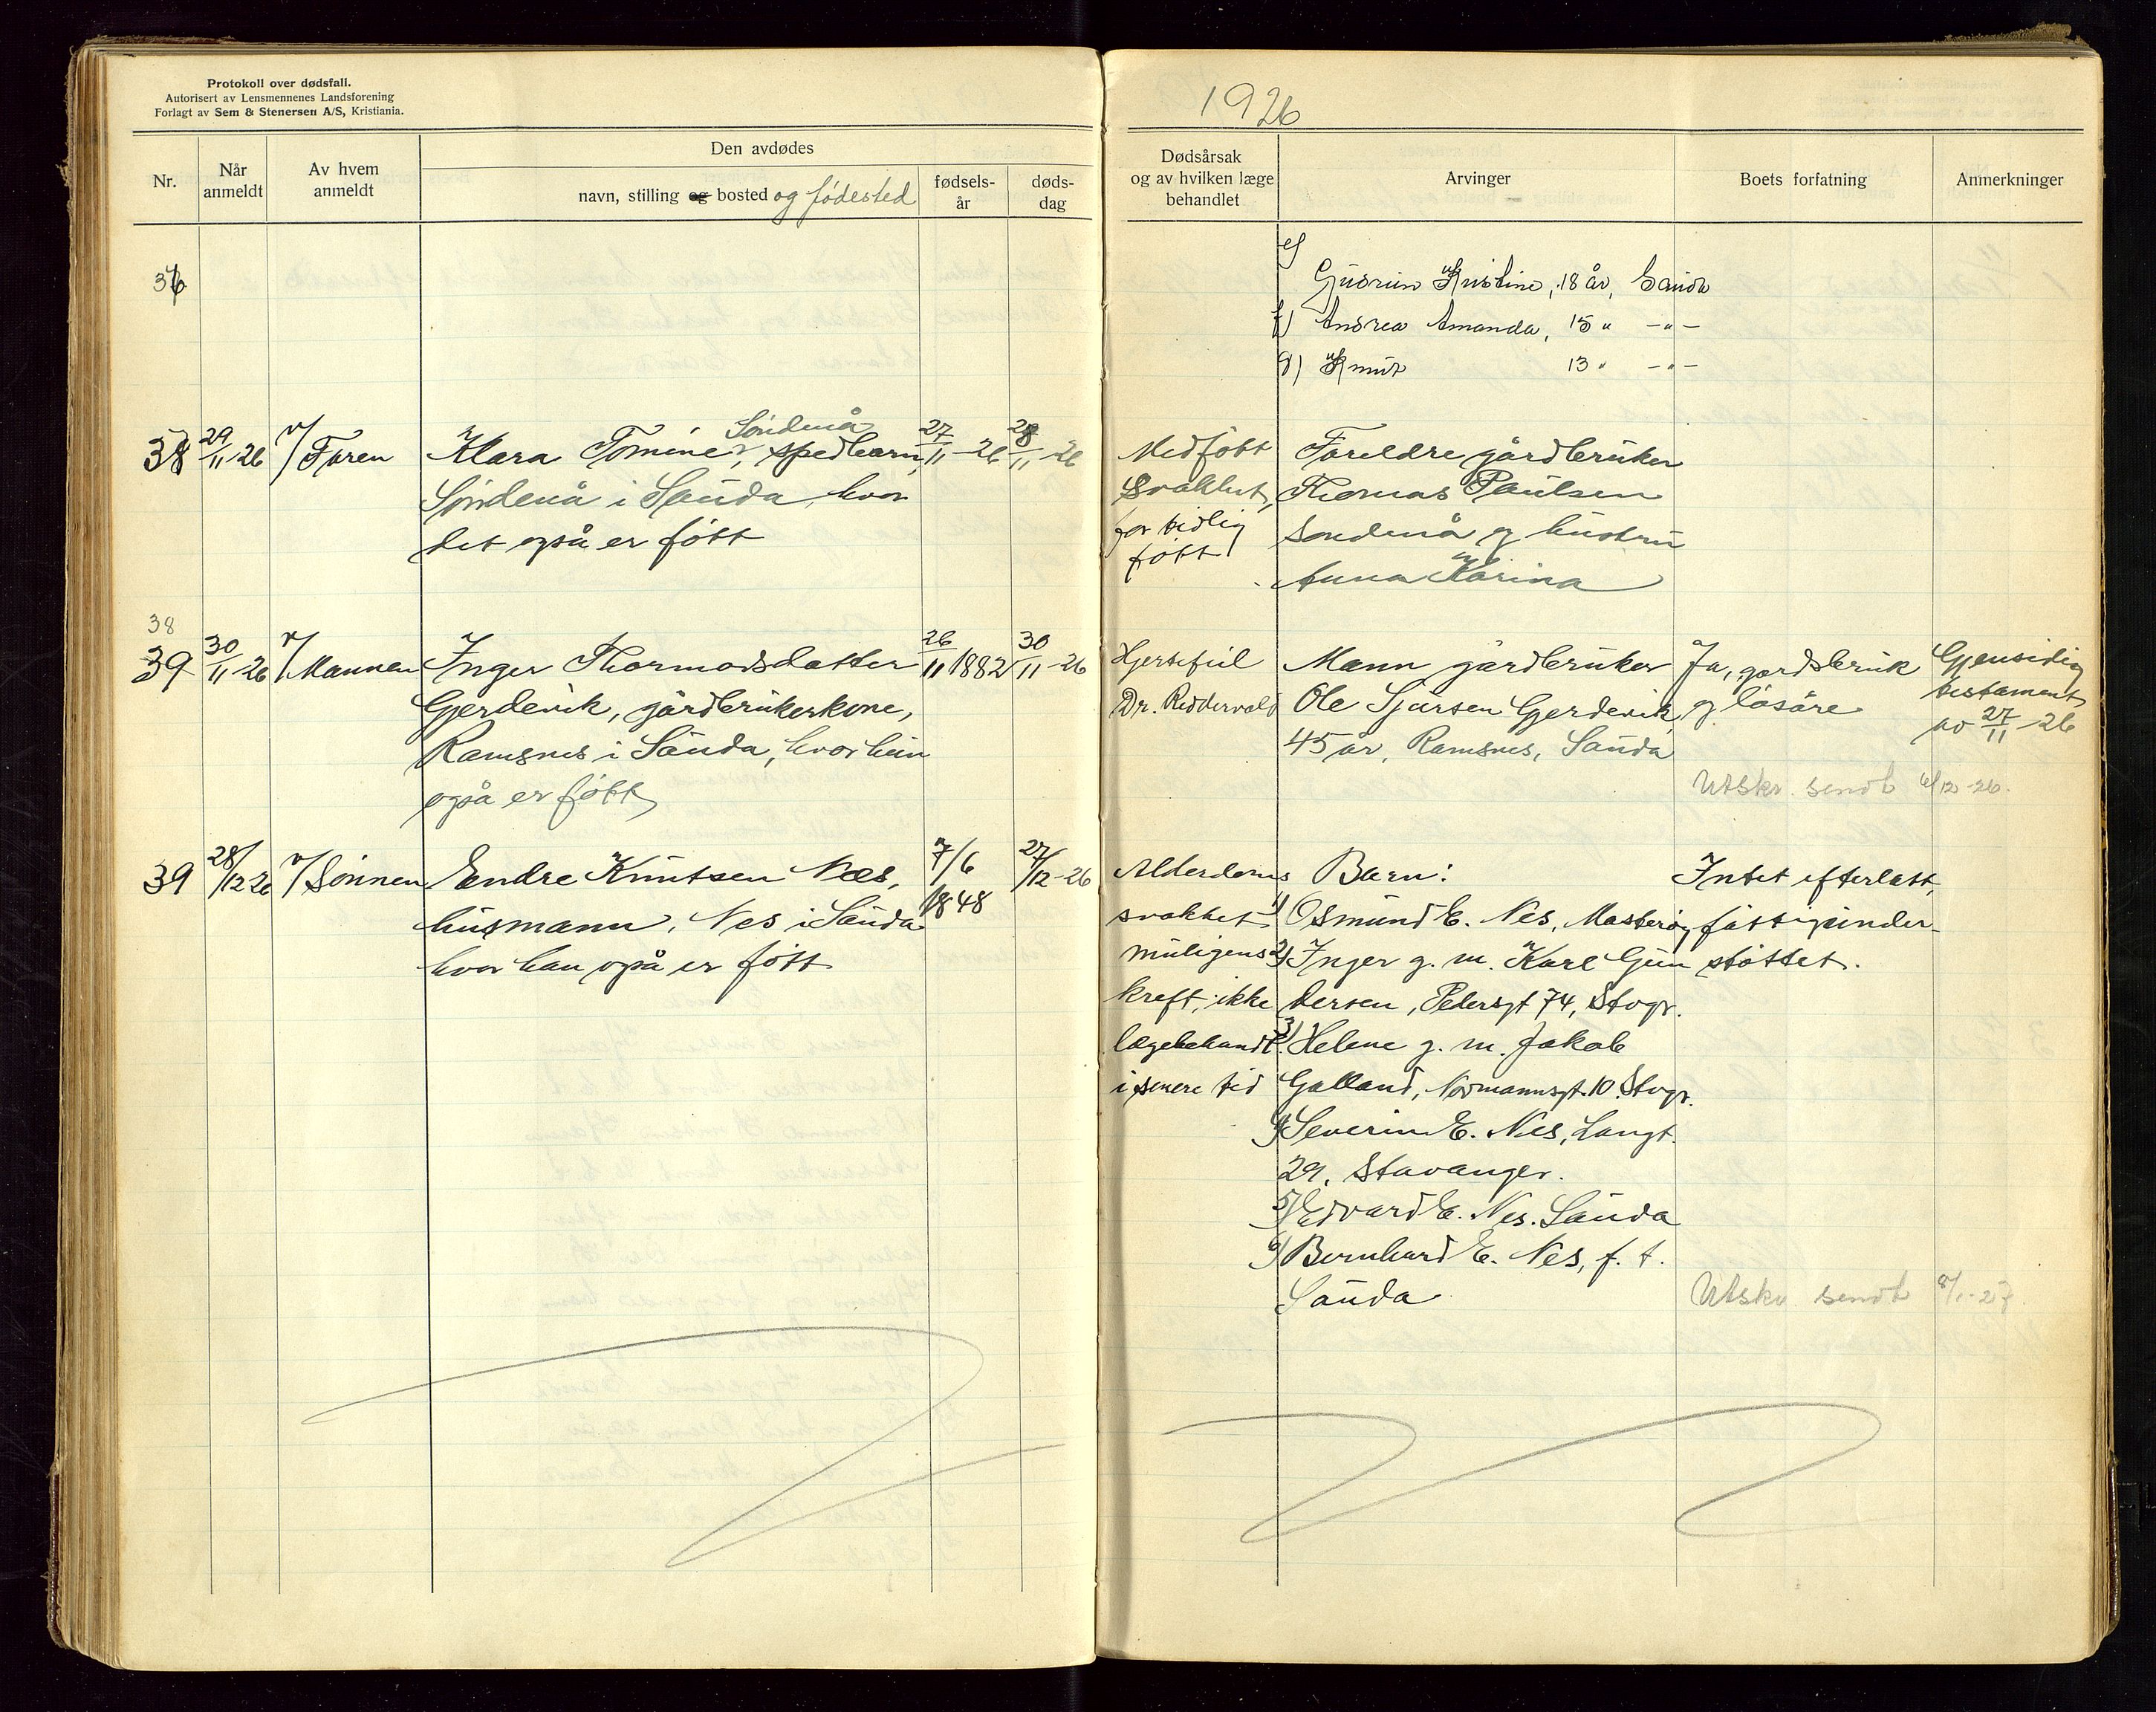 Protokoll over dødsfall.
Autorisert av Lensmennenes Landsforening
Forlagt av Sem & Stenersen A/S, Kristiania.
1926
Nr.
Når anmeldt
Av hvem anmeldt
Den avdødes
navn, stilling og bosted og fødested
fødsels-år
døds-dag
Dødsårsak og av hvilken læge behandlet
Arvinger
Boets forfatning
Anmerkninger
36
e)
Gudrun Kristine, 18 år, Sauda
f) Andrea Amanda, 15 " -"-
g) Knut 13 " -"-
38
29/11-26
v/ Faren
Søndenå
Klara Tomine, spedbarn,
Søndenå i Sauda, hvor
det også er født
27/11-26
28/11-26
Medfødt
svakhet,
for tidlig
født
Foreldre gårdbruker
Thomas Paulsen
Søndenå og hustru
Anna Karina
38
39
30/11-26
v/ Mannen
Inger Thormodsdatter
Gjerdevik, gårdbrukerkone,
Ramsnes i Sauda, hvor hun
også er født
26/11 1882
30/11-26
Hjertefeil
Dr. Riddervold
Mann gårdbruker
Ole Sjursen Gjerdevik,
45 år, Ramsnes, Sauda
Ja, gardsbruk
og løsøre
Gjensidig
testament
av 27/11-26
Utskr. sendt 6/12-26.
39
28/12 26
v/ Sønnen
Endre Knutsen Næs,
husmann, Nes i Sauda
hvor han også er født
7/6
1848
27/12-26
Alderdoms
svakhet
muligens
kreft, ikke
lægebehandl.
i senere tid
Barn:
1) Osmund E. Nes, Mosterøy
2) Inger g. m. Karl Gun
dersen, Pedersgt 74, Stvgr.
3) Helene g. m. Jakob
Galland, Normannsgt. 10 Stvgr.
4) Severin E. Nes, Langt.
29, Stavanger.
5) Edvard E. Nes. Sauda
6) Bernhard E. Nes, f. t.
Sauda
Intet efterlatt,
fattigunder-
støttet.
Utskr. sendt 8/1-27.